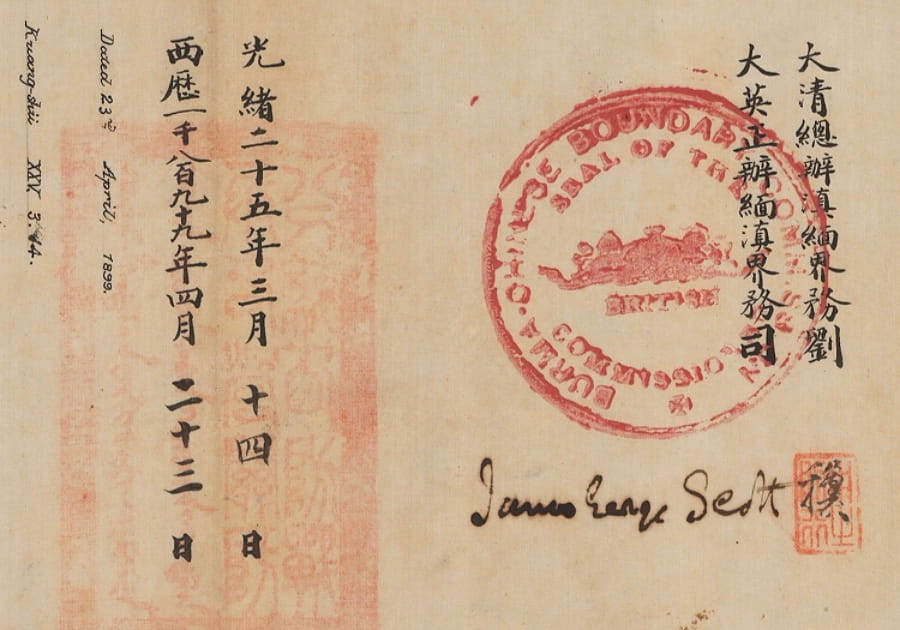 大清總辦滇緬界務劉
大英正辦緬滇界務司
SEAL OF THE
BRITISH
COMMISSIONER
BURMA-CHINESE BOUNDARY COMMISSION
James George Scott
光緒二十五年三月 十四 日
西歷一千八百九十九年四月 二十三 日
Dated 23rd April, 1899.
Kuang-hsü XXV. 3. 14.